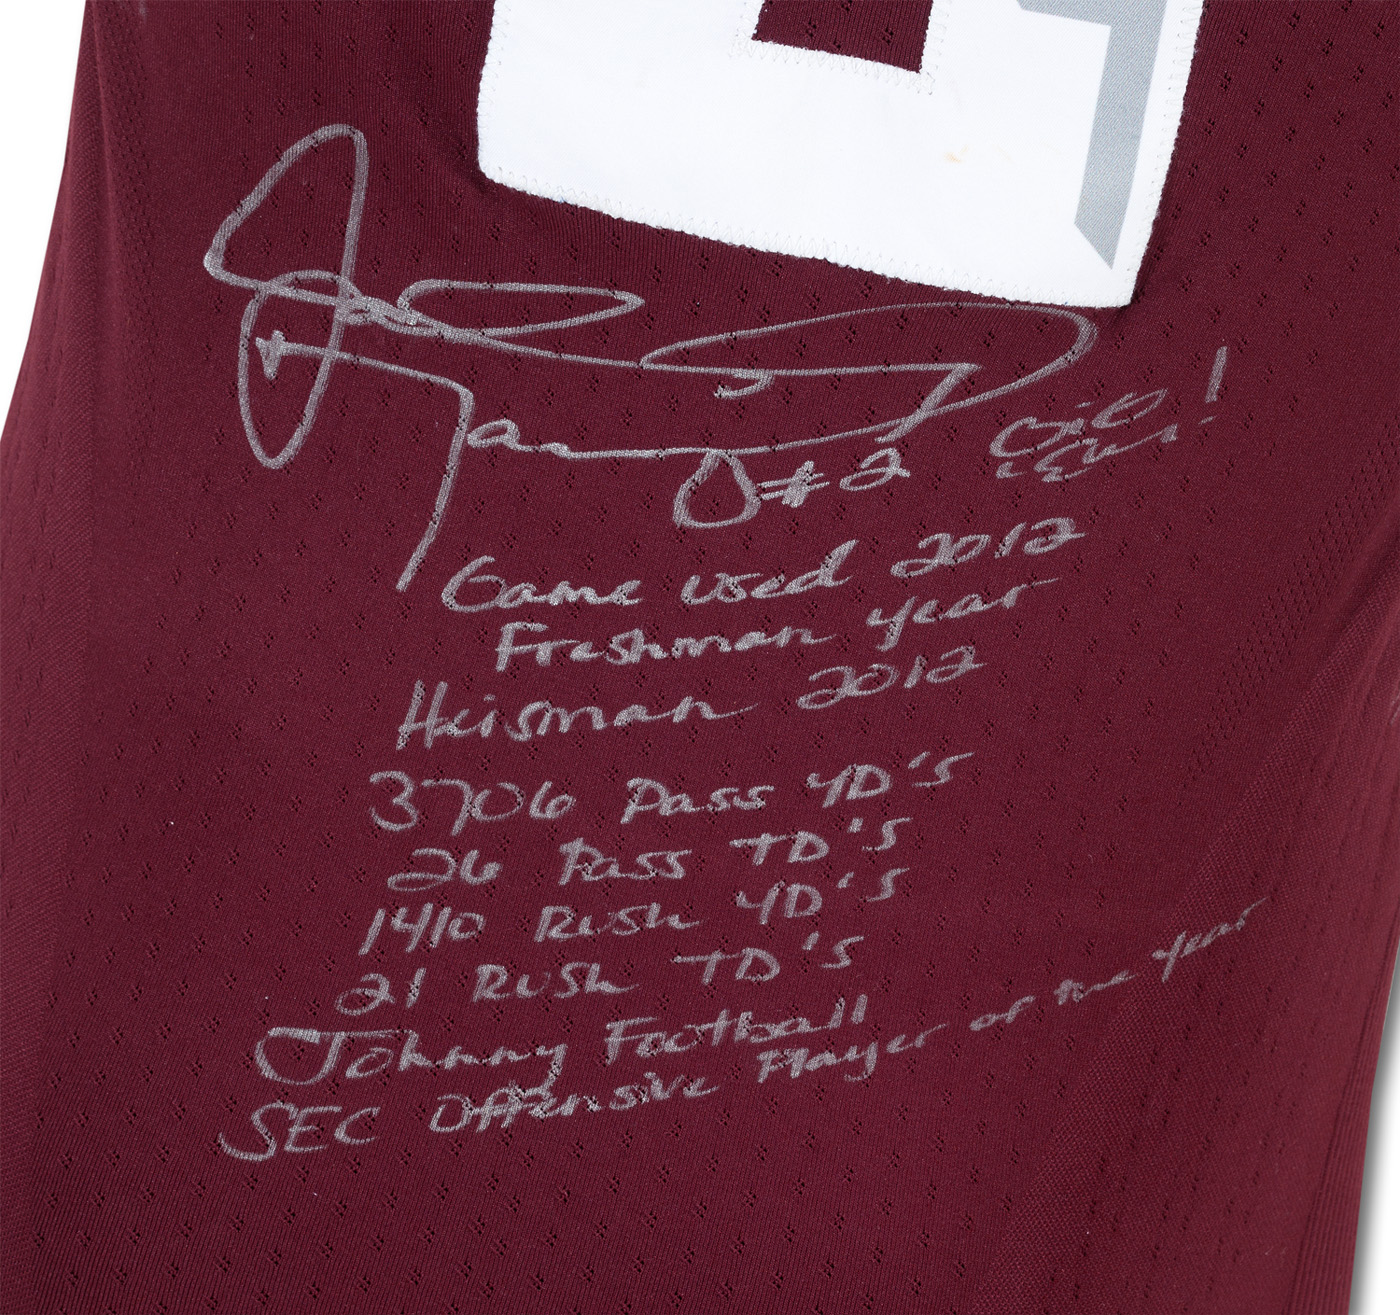 #2 Gig 'Em!
Game used 2012
Freshman year
Heisman 2012
3706 Pass YD'S
26 Pass TD'S
1410 Rush YD'S
21 Rush TD'S
Johnny Football
SEC Offensive Player of the year